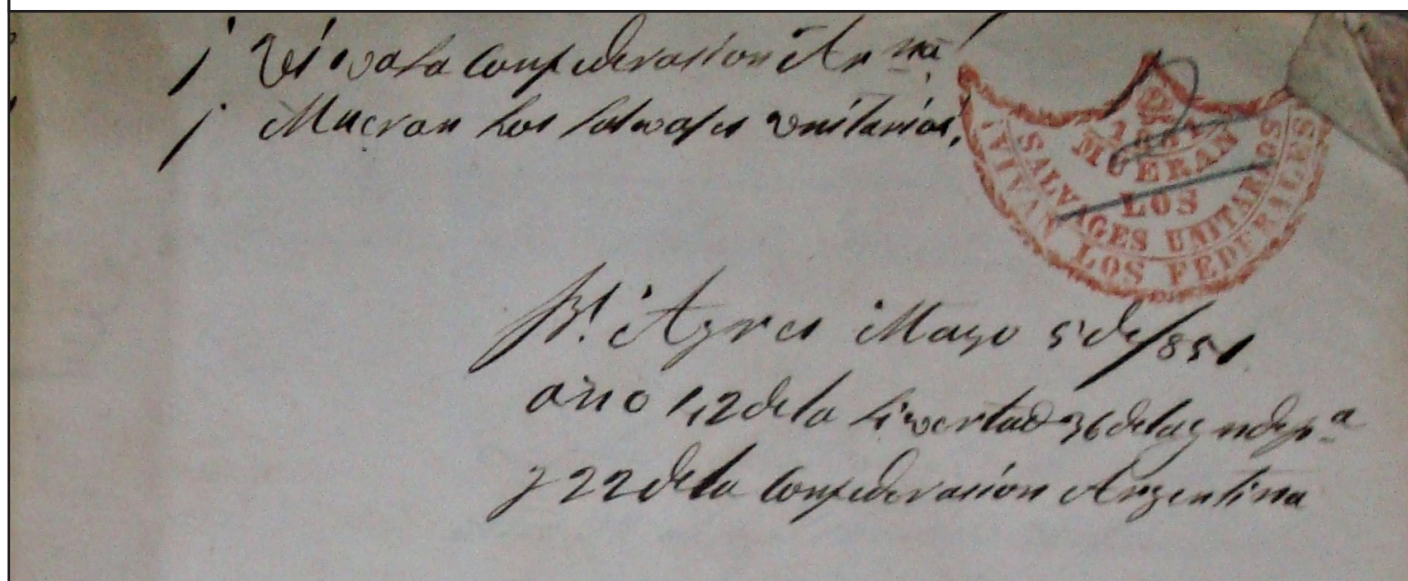 ¡ Viva la Confederasion Arna!
¡ Mueran los salvajes unitarios!
1851
MUERAN
LOS
SALVAGES UNITARIOS
VIVAN LOS FEDERALES
Bs. Ayres Mayo 5 de /851
año 42 de la Livertad 36 de la Yndepa
y 22 de la Confederasion Argentina